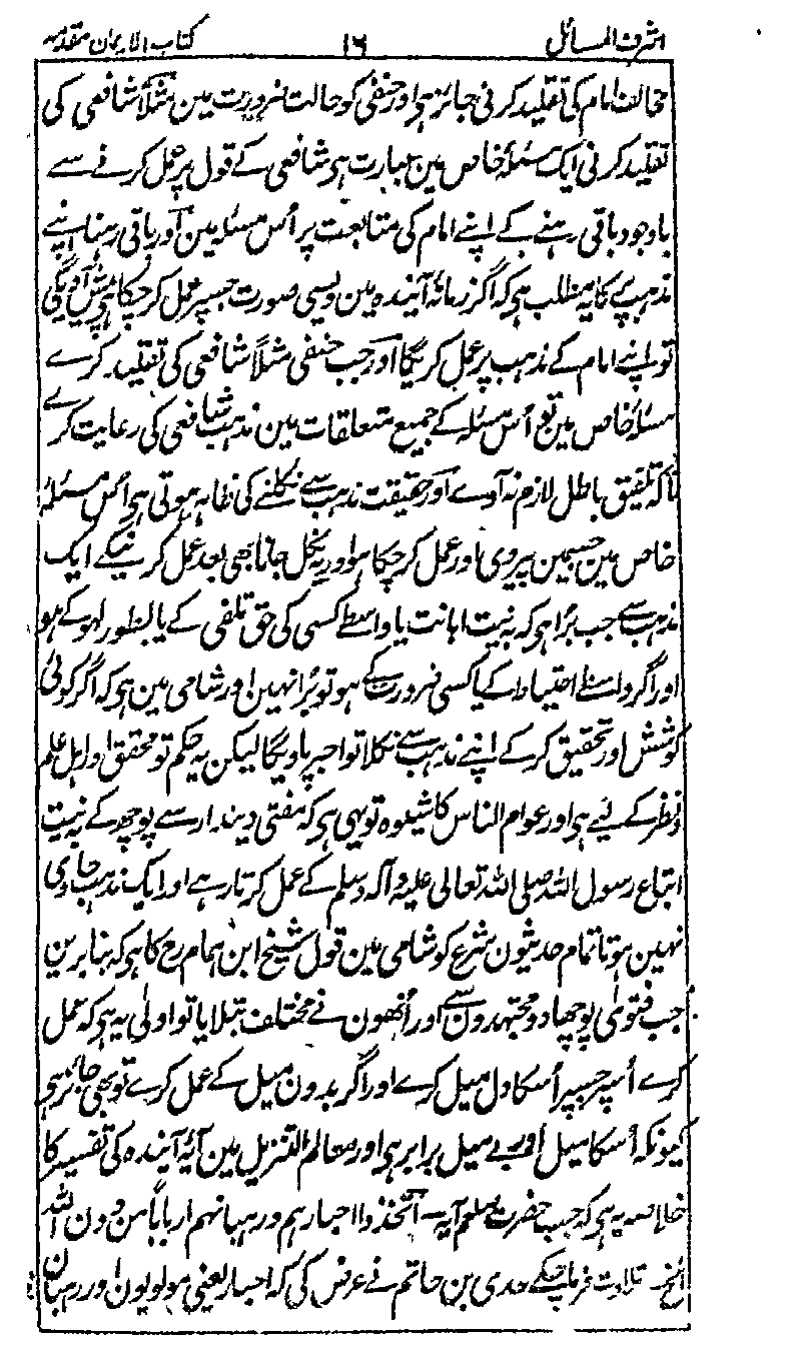 اشرف المسائل ۱٦ کتاب الایمان مقدمہ
مخالف امام کی تقلید کرنی جائز ہی اور حنفی کو حالت ضرورت مین مثلاً شافعی کی
تقلید کرنی ایک مسئلہ خاص مین عبارت ہی شافعی کے قول پر عمل کرنے سے
باوجود باقی رہنے کے اپنے امام کی متابعت پر اُس مسئلہ مین اور باقی رہنا اپنے
مذہب پر کا یہ مطلب ہی کہ اگر زمانۂ آیندہ مین ویسی صورت جسپر عمل کر چکا ہی پیش آویگی
تو اپنے امام کے مذہب پر عمل کریگا اور جب حنفی مثلاً شافعی کی تقلید کرے
مسئلۂ خاص مین تو اُس مسئلہ کے جمیع متعلقات مین مذہب شافعی کی رعایت کرے
تاکہ تلفیق باطل لازم نہ آوے اور حقیقت مذہب سے نکلنے کی ظاہر ہوتی ہی اُس مسئلہ
خاص مین جسمین پیروی اور عمل کر چکا ہو اور یہ نکل جانا بھی بعد عمل کرنیکے ایک
مذہب سے جب برا ہی کہ بہ نیت اہانت یا واسطے کسی کی حق تلفی کے یا بطور لہو کے ہو
اور اگر واسطے احتیاط کے یا کسی ضرورت کے ہو تو برا نہین اور شامی مین ہی کہ اگر کوئی
کوشش اور تحقیق کر کے اپنے مذہب سے نکلا تو اجر پاویگا لیکن یہ حکم تو محقق اور اہل علم
ونظر کے لیے ہی اور عوام الناس کا شیوہ تو یہی ہی کہ مفتی دیندار سے پوچھ کے بہ نیت
اتباع رسول اللہ صلی اللہ تعالی علیہ وآلہ وسلم کے عمل کرتا رہے اور ایک مذہب حاوی
نہین ہوتا تمام حدیثون شرع کو شامی مین قول شیخ ابن ہمام رح کا ہی کہ بنا برین
جب فتوی پوچھا دو مجتہدون سے اور اُنھون نے مختلف بتلایا تو اولی یہ ہی کہ عمل
کرے اُسپر جسپر اُسکا دل میل کرے اور اگر بدون میل کے عمل کرے تو بھی جائز ہی
کیونکہ اُسکا میل اور بے میل برابر ہی اور معالم التنزیل مین آیۂ آیندہ کی تفسیر کا
خلاصہ یہ ہی کہ جب حضرت صلعم آیہ اتخذوا احبارہم ورہبانہم اربابا من دون اللہ
الخ تلاوت فرما چکے عدی بن حاتم نے عرض کی کہ احبار یعنی مولویون اور رہبان